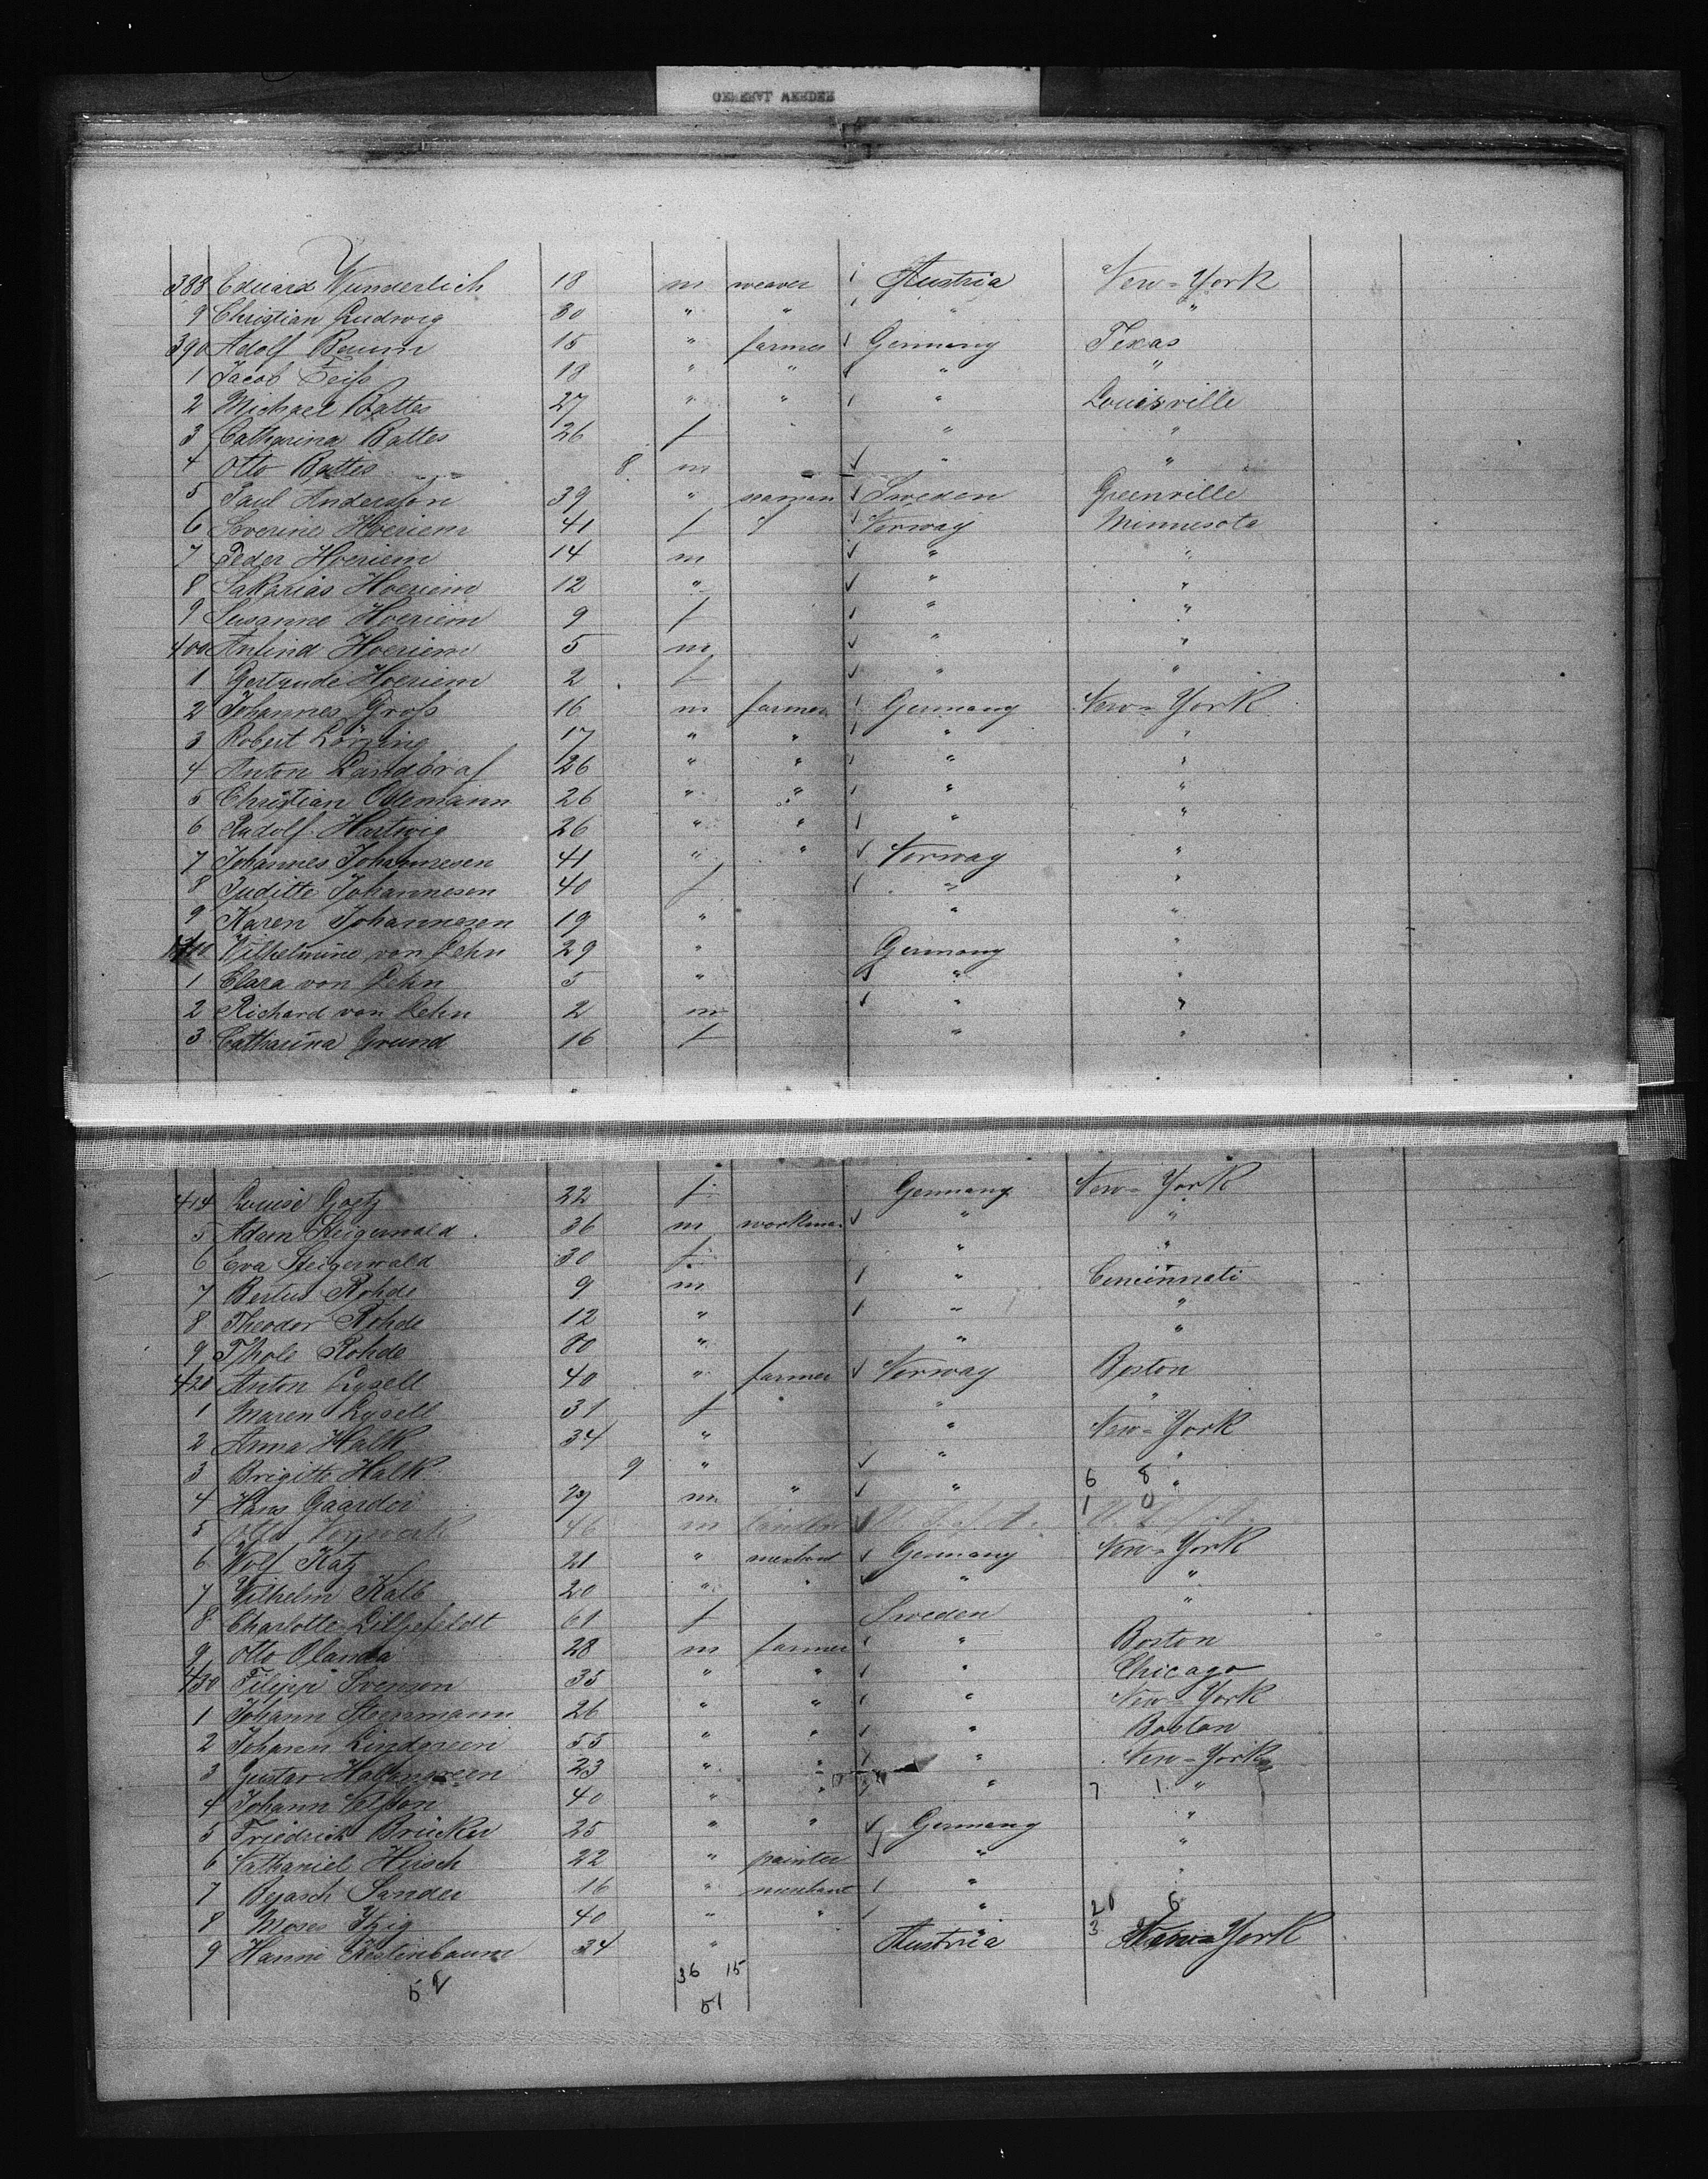 388 Eduard Wunderlich 18 m weaver Austria New-York
9 Christian Ludwig 30 " " " "
390 Adolf Baum 15 " farmer Germany Texas
1 Jacob Feiss 18 " " " "
2 Michael Battes 27 " " " Louisville
3 Catharina Battes 26 f " "
4 Otto Battes 8 m " "
5 Paul Anderson 39 " seaman Sweden Greenville
6 Severine Hoeriem 41 f Norway Minnesota
7 Peder Hoeriem 14 m " "
8 Sakarias Hoeriem 12 " " "
9 Susanne Hoeriem 9 f " "
400 Anfind Hoeriem 5 m " "
1 Gertrude Hoeriem 2 f " "
2 Johannes Gross 16 m farmer Germany New-York
3 Robert 17 " " " "
4 Anton Landgraf 26 " " " "
5 Christian Ostemann 26 " " " "
6 Rudolf Hartwig 26 " " " "
7 Johannes Johannesen 41 " " Norway "
8 Juditte Johannesen 40 f " "
9 Karen Johannesen 19 " " "
410 Wilhelmine von Lehn 29 " Germany "
1 Clara von Lehn 5 " " "
2 Richard von Lehn 2 m " "
3 Catharina Grund 16 f " "
414 Louise Goetz 22 f Germany New-York
5 Adam Steigerwald 36 m workman " "
6 Eva Steigerwald 30 f " "
7 Bertus Rohde 9 m " Cincinnati
8 Theodor Rohde 12 " " "
9 Thole Rohde 80 " " "
420 Anton Lysell 40 " farmer Norway Boston
1 Maren Lysell 31 f " " "
2 Anna Halk 34 " " New-York
3 Brigitte Halk 9 " " "
4 Hans Gaarder m " " 6 8 "
5 Otto 46 m U.S.of.A. 1 0 U.S.of.A.
6 Wolf Katz 21 " merchant Germany New-York
7 Wilhelm Kalb 20 " " " "
8 Charlotte Liljefeldt 61 f Sweden "
9 Otto Olanda 28 m farmer " Boston
430 Filippi Svenson 35 " " " Chicago
1 Johann Steermann 26 " " " New-York
2 Johann Lindgreen 55 " " " Boston
3 Gustav 23 " " " New-York
4 Johann 40 " " " 7 1 "
5 Friedrich Brücker 25 " " Germany "
6 Nathaniel Hirsch 22 " painter " "
7 Sander 16 " merchant " "
8 Moses Itzig 40 " " " 20 6
9 Hanni Kestenbaum 34 " Austria 3 New-York
52 36 15
51